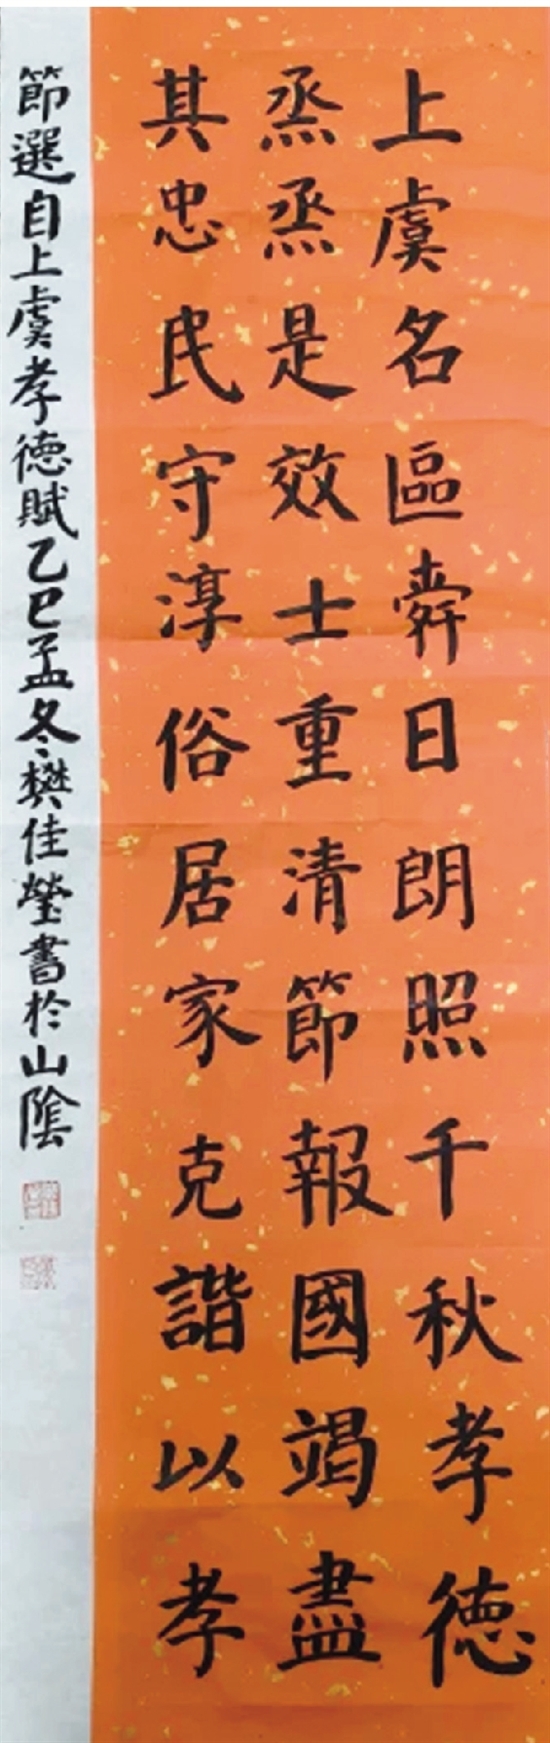 上虞名區舜日朗照千秋孝德
烝烝是效士重清節報國竭盡
其忠民守淳俗居家克諧以孝
節選自上虞孝德賦乙巳孟冬樊佳瑩書於山陰